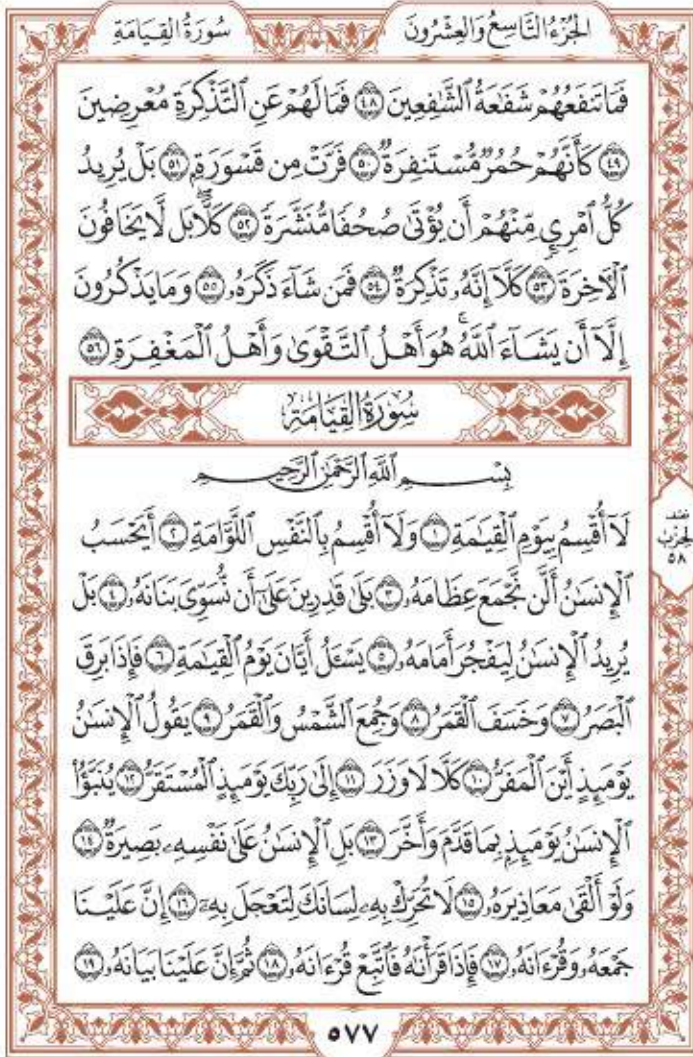 سُورَةُ القِيَامَةِ الجُزْءُ التَّاسِعُ وَالعِشْرُونَ
فَمَا تَنفَعُهُمْ شَفَٰعَةُ ٱلشَّٰفِعِينَ ٤٨ فَمَا لَهُمْ عَنِ ٱلتَّذْكِرَةِ مُعْرِضِينَ
٤٩ كَأَنَّهُمْ حُمُرٌ مُّسْتَنفِرَةٌ ٥٠ فَرَّتْ مِن قَسْوَرَةٍۭ ٥١ بَلْ يُرِيدُ
كُلُّ ٱمْرِئٍ مِّنْهُمْ أَن يُؤْتَىٰ صُحُفًا مُّنَشَّرَةً ٥٢ كَلَّاۖ بَل لَّا يَخَافُونَ
ٱلْأَخِرَةَ ٥٣ كَلَّآ إِنَّهُۥ تَذْكِرَةٌ ٥٤ فَمَن شَآءَ ذَكَرَهُۥ ٥٥ وَمَا يَذْكُرُونَ
إِلَّآ أَن يَشَآءَ ٱللَّهُۚ هُوَ أَهْلُ ٱلتَّقْوَىٰ وَأَهْلُ ٱلْمَغْفِرَةِ ٥٦
سُورَةُ القِيَامَةِ
بِسْمِ ٱللَّهِ ٱلرَّحْمَٰنِ ٱلرَّحِيمِ
لَآ أُقْسِمُ بِيَوْمِ ٱلْقِيَٰمَةِ ١ وَلَآ أُقْسِمُ بِٱلنَّفْسِ ٱللَّوَّامَةِ ٢ أَيَحْسَبُ
ٱلْإِنسَٰنُ أَلَّن نَّجْمَعَ عِظَامَهُۥ ٣ بَلَىٰ قَٰدِرِينَ عَلَىٰٓ أَن نُّسَوِّىَ بَنَانَهُۥ ٤ بَلْ
يُرِيدُ ٱلْإِنسَٰنُ لِيَفْجُرَ أَمَامَهُۥ ٥ يَسْـَٔلُ أَيَّانَ يَوْمُ ٱلْقِيَٰمَةِ ٦ فَإِذَا بَرِقَ
ٱلْبَصَرُ ٧ وَخَسَفَ ٱلْقَمَرُ ٨ وَجُمِعَ ٱلشَّمْسُ وَٱلْقَمَرُ ٩ يَقُولُ ٱلْإِنسَٰنُ
يَوْمَئِذٍ أَيْنَ ٱلْمَفَرُّ ١٠ كَلَّا لَا وَزَرَ ١١ إِلَىٰ رَبِّكَ يَوْمَئِذٍ ٱلْمُسْتَقَرُّ ١٢ يُنَبَّؤُا۟
ٱلْإِنسَٰنُ يَوْمَئِذٍۭ بِمَا قَدَّمَ وَأَخَّرَ ١٣ بَلِ ٱلْإِنسَٰنُ عَلَىٰ نَفْسِهِۦ بَصِيرَةٌ ١٤
وَلَوْ أَلْقَىٰ مَعَاذِيرَهُۥ ١٥ لَا تُحَرِّكْ بِهِۦ لِسَانَكَ لِتَعْجَلَ بِهِۦٓ ١٦ إِنَّ عَلَيْنَا
جَمْعَهُۥ وَقُرْءَانَهُۥ ١٧ فَإِذَا قَرَأْنَٰهُ فَٱتَّبِعْ قُرْءَانَهُۥ ١٨ ثُمَّ إِنَّ عَلَيْنَا بَيَانَهُۥ ١٩
نصف
الحزب
٥٨
٥٧٧